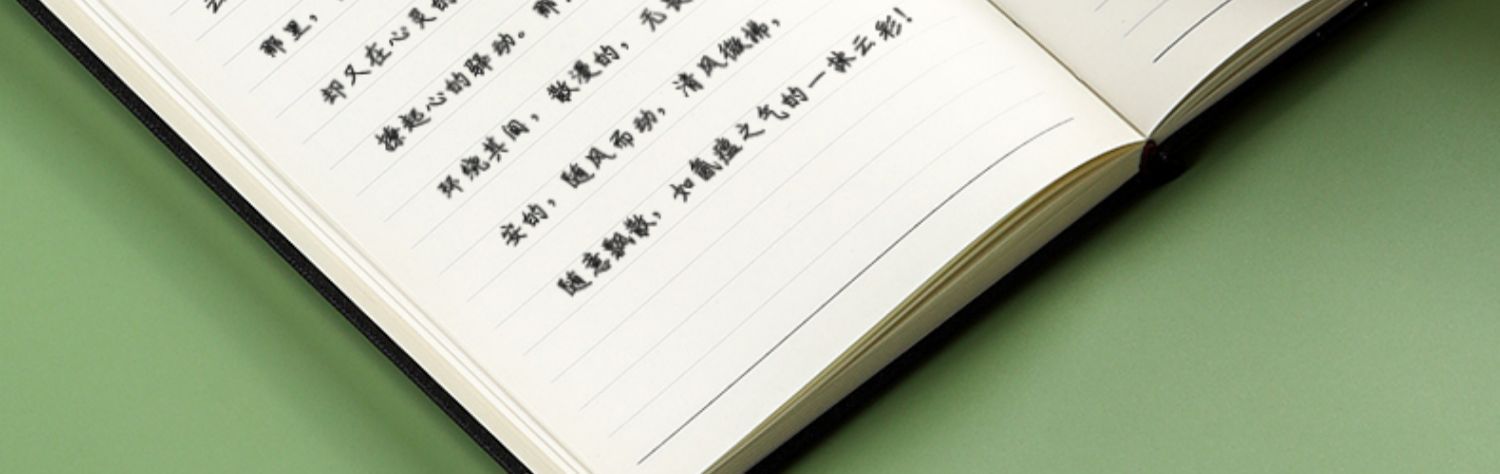 那里，
却又在心灵的
撩起心的驿动。那
环绕其间，散漫的，无
安的，随风而动，清风微拂，
随意飘散，如氤氲之气的一帙云彩！